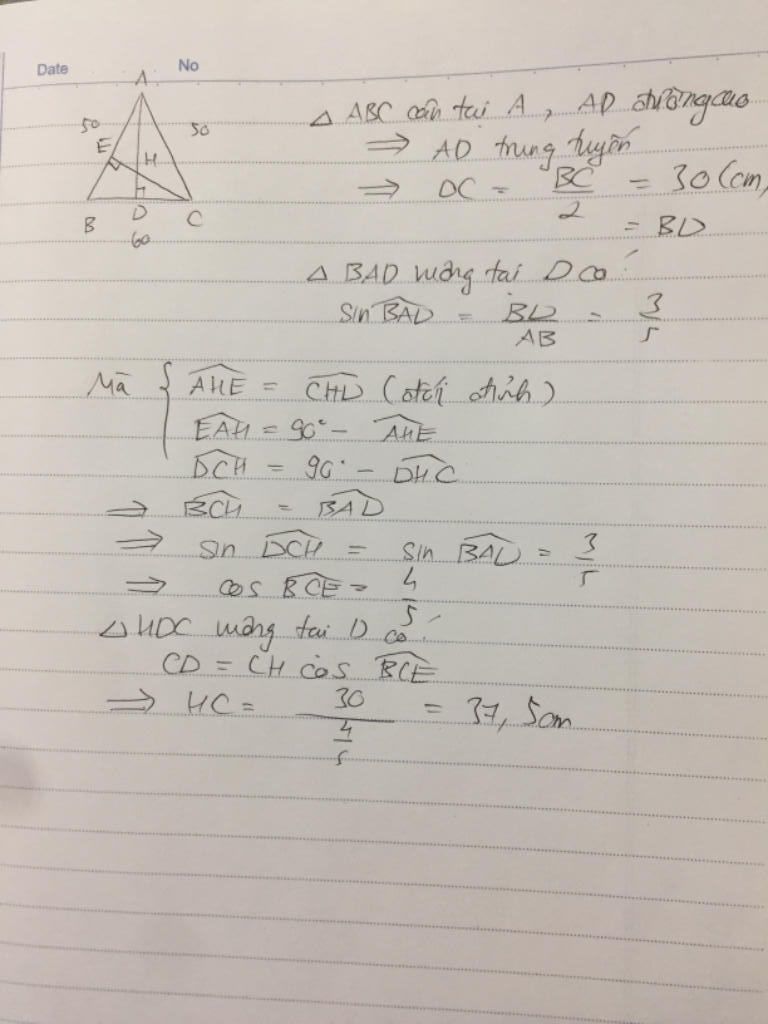 Date No
A
50 50
E H
B D C
60
△ ABC cân tại A, AD đường cao
⇒ AD trung tuyến
⇒ DC = BC/2 = 30 (cm)
= BD
△ BAD vuông tại D có:
sin BAD = BD/AB = 3/5
Mà { AHE = CHD (đối đỉnh)
EAH = 90° - AHE
DCH = 90° - DHC
⇒ BCH = BAD
⇒ sin DCH = sin BAD = 3/5
⇒ cos BCE = 4/5
△ HDC vuông tại D có:
CD = CH cos BCE
⇒ HC = 30/(4/5) = 37,5cm